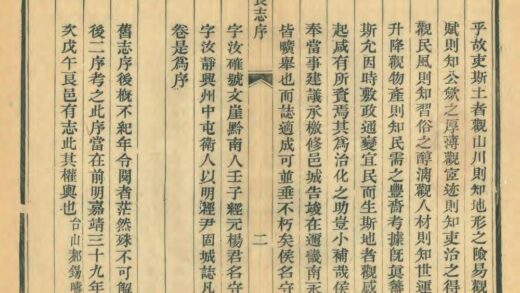 乎故吏斯土者觀山川則知地形之險易觀
賦則知公斂之厚薄觀宦迹則知吏治之得
觀民風則知習俗之醇漓觀人材則知世運
升降觀物產則知民需之豐嗇考據既真舊
斯允因時敷政通變宜民而生斯地者觀感
起咸有所資焉其爲治化之助豈小補哉侯
奉當事建議承檄修邑城告竣在邇疇南永
皆曠舉也而誌適成可並垂不朽矣侯名守
字汝確號文崖黔南人壬子經元楊君名守
字汝靜興州中屯衛人以明經尹固城誌凡
卷是爲序
舊志序後概不紀年令閱者茫然殊不可解
後二序考之此序當在前明嘉靖三十九年
次戊午良邑有志此其權輿也 台山郝錫疇
良志序
二